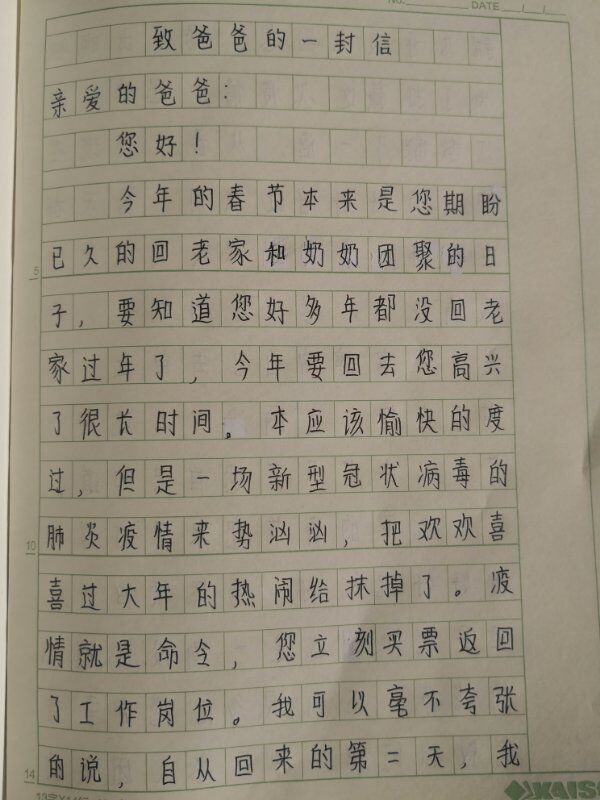 No. DATE / /
致爸爸的一封信
亲爱的爸爸：
您好！
今年的春节本来是您期盼
已久的回老家和奶奶团聚的日
5
子，要知道您好多年都没回老
家过年了，今年要回去您高兴
了很长时间。本应该愉快的度
过，但是一场新型冠状病毒的
肺炎疫情来势汹汹，把欢欢喜
10
喜过大年的热闹给抹掉了。疫
情就是命令，您立刻买票返回
了工作岗位。我可以毫不夸张
的说，自从回来的第二天，我
14